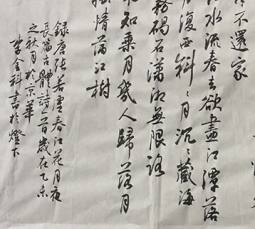 不還家
水流春去欲盡江潭落
復西斜々月沉々藏海
霧碣石瀟湘無限路
知乘月幾人歸落月
搖情滿江樹
錄唐張若虛春江花月夜
長篇古體詩一首歲在乙未
之秋月於京華
書於燈下